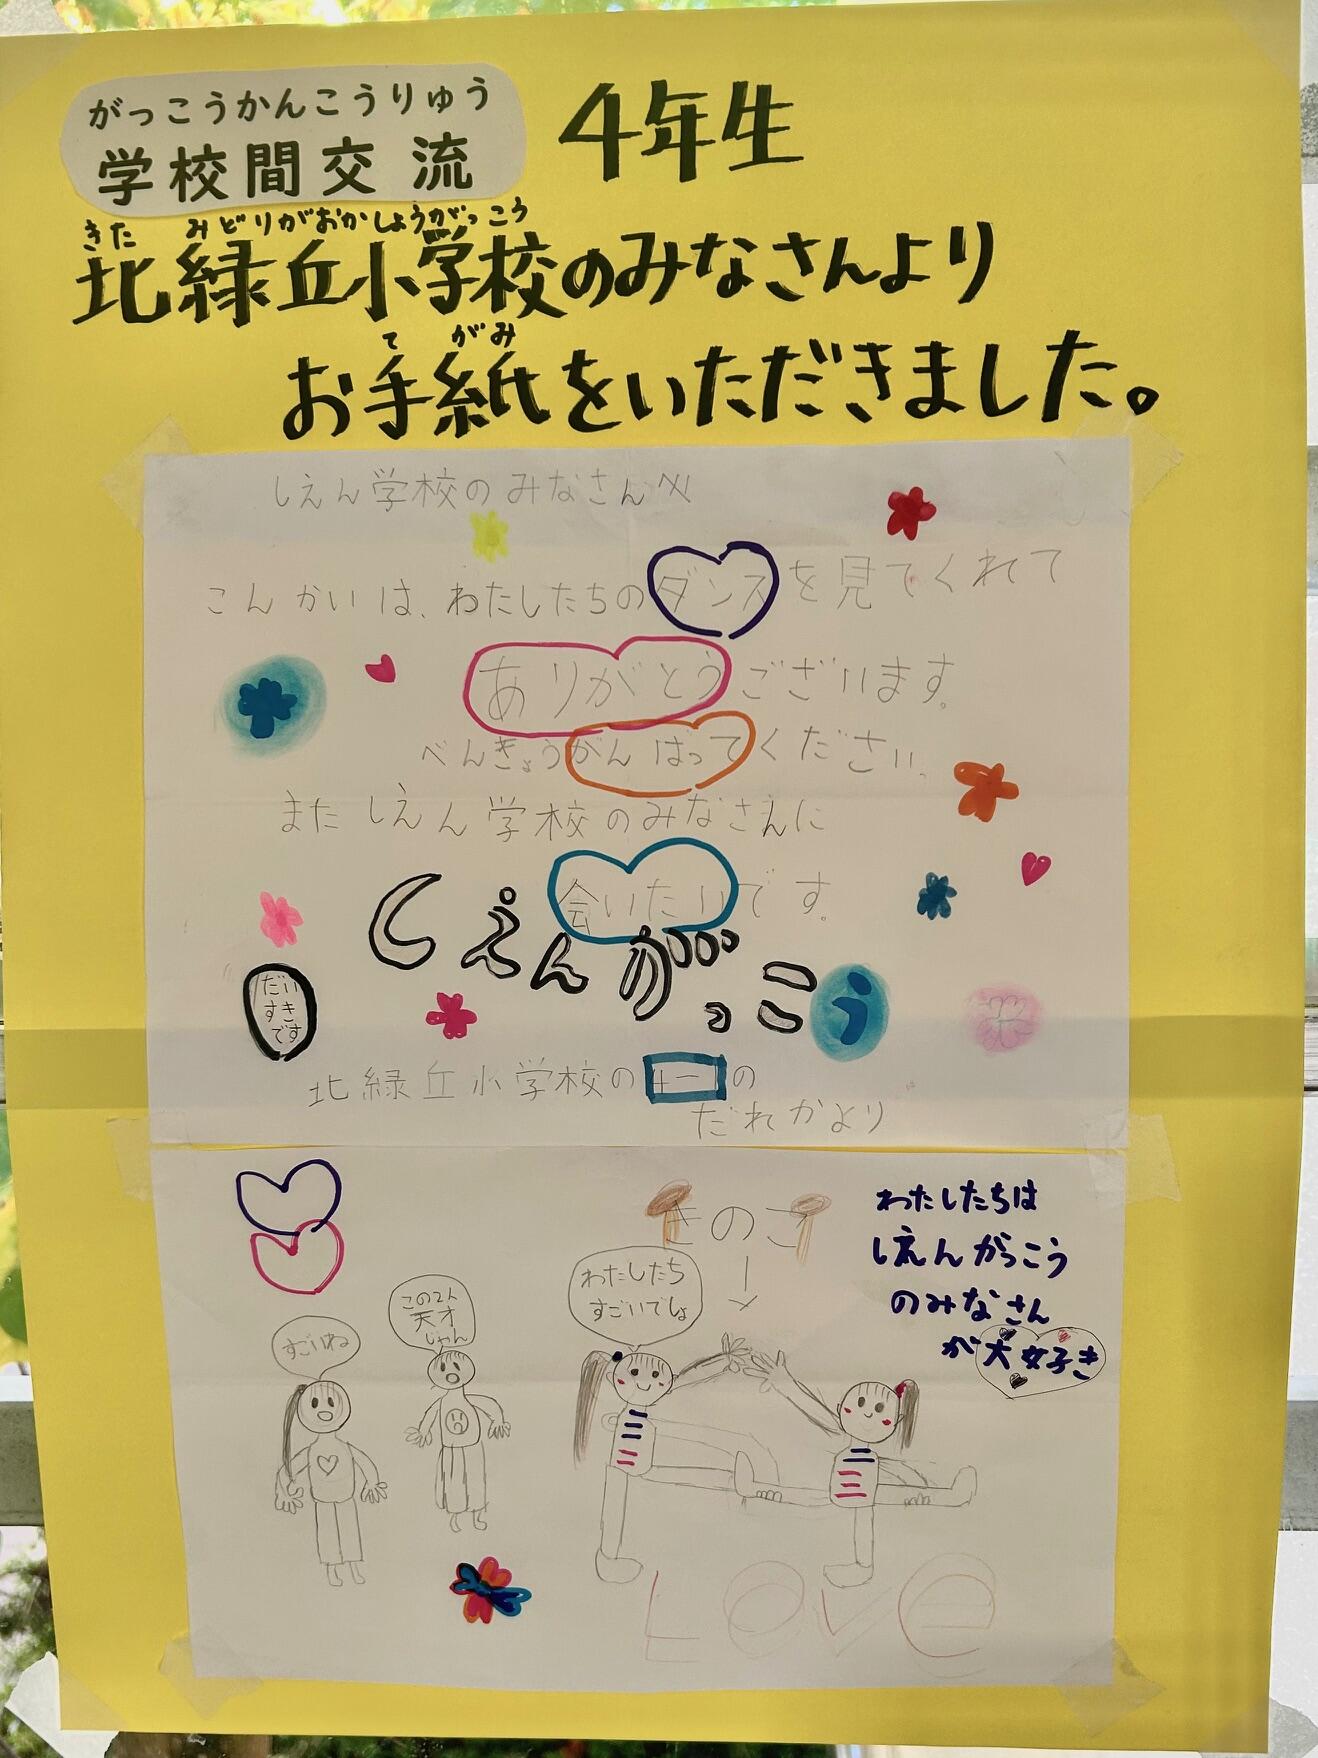 がっこうかんこうりゅう
学校間交流
4年生
きた みどりがおかしょうがっこう
北緑丘小学校のみなさんより
て がみ
お手紙をいただきました。
しえん学校のみなさんへ
こんかいは、わたしたちのダンスを見てくれて
ありがとうございます。
べんきょうがんばってください。
またしえん学校のみなさんに
会いたいです。
しえんがっこう
だい
すき
です
北緑丘小学校の4-1の
だれかより
きのこ
わたしたちは
しえんがっこう
のみなさん
が大好き
すごいね
この2人
天才
じゃん
わたしたち
すごいでしょ
Love